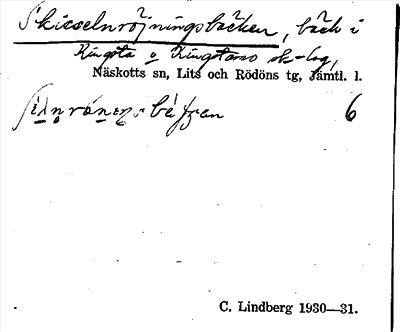 Skieselnröjningsbäcken, bäck i
Kingsta o Kingstavo sk-lag,
Näskotts sn, Lits och Rödöns tg, Jämtl. l.
6
C. Lindberg 1930—31.